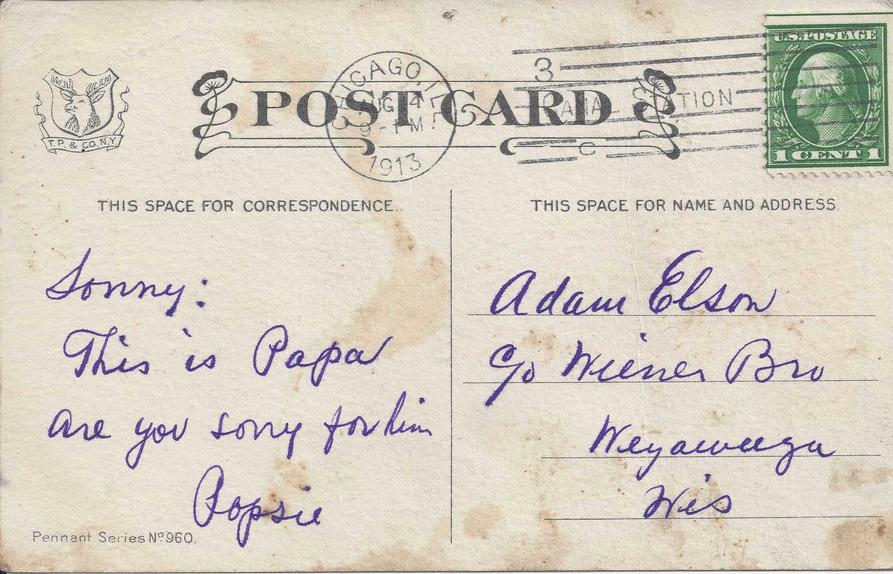 U.S. POSTAGE
1 CENT 1
CHICAGO, ILL.
AUG 4
9 - PM
1913
3
C
POST CARD
T.P. & CO. N.Y.
THIS SPACE FOR CORRESPONDENCE.
Sonny:
This is Papa
are you sorry for him
Popsie
Pennant Series Nº 960.
THIS SPACE FOR NAME AND ADDRESS.
Adam Elson
c/o Wiener Bro
Weyauwega
Wis